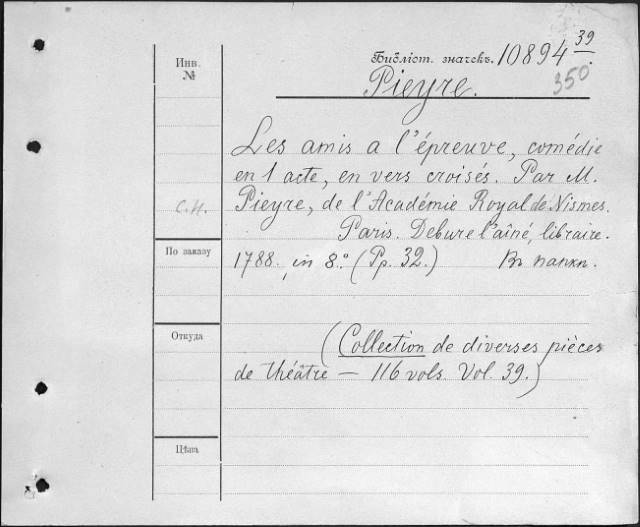 Инв.
№
Библіот. значекъ. 10894 39
350
Pieyre.
Les amis a l'épreuve, comédie
en 1 acte, en vers croisés. Par M.
С.Н. Pieyre, de l'Académie Royal de Nismes.
Paris. Debure l'aîné, libraire.
По заказу
1788. in 8.º (Pp. 32.) Въ папкѣ.
Откуда
(Collection de diverses pièces
de théâtre — 116 vols. Vol. 39.)
Цѣна